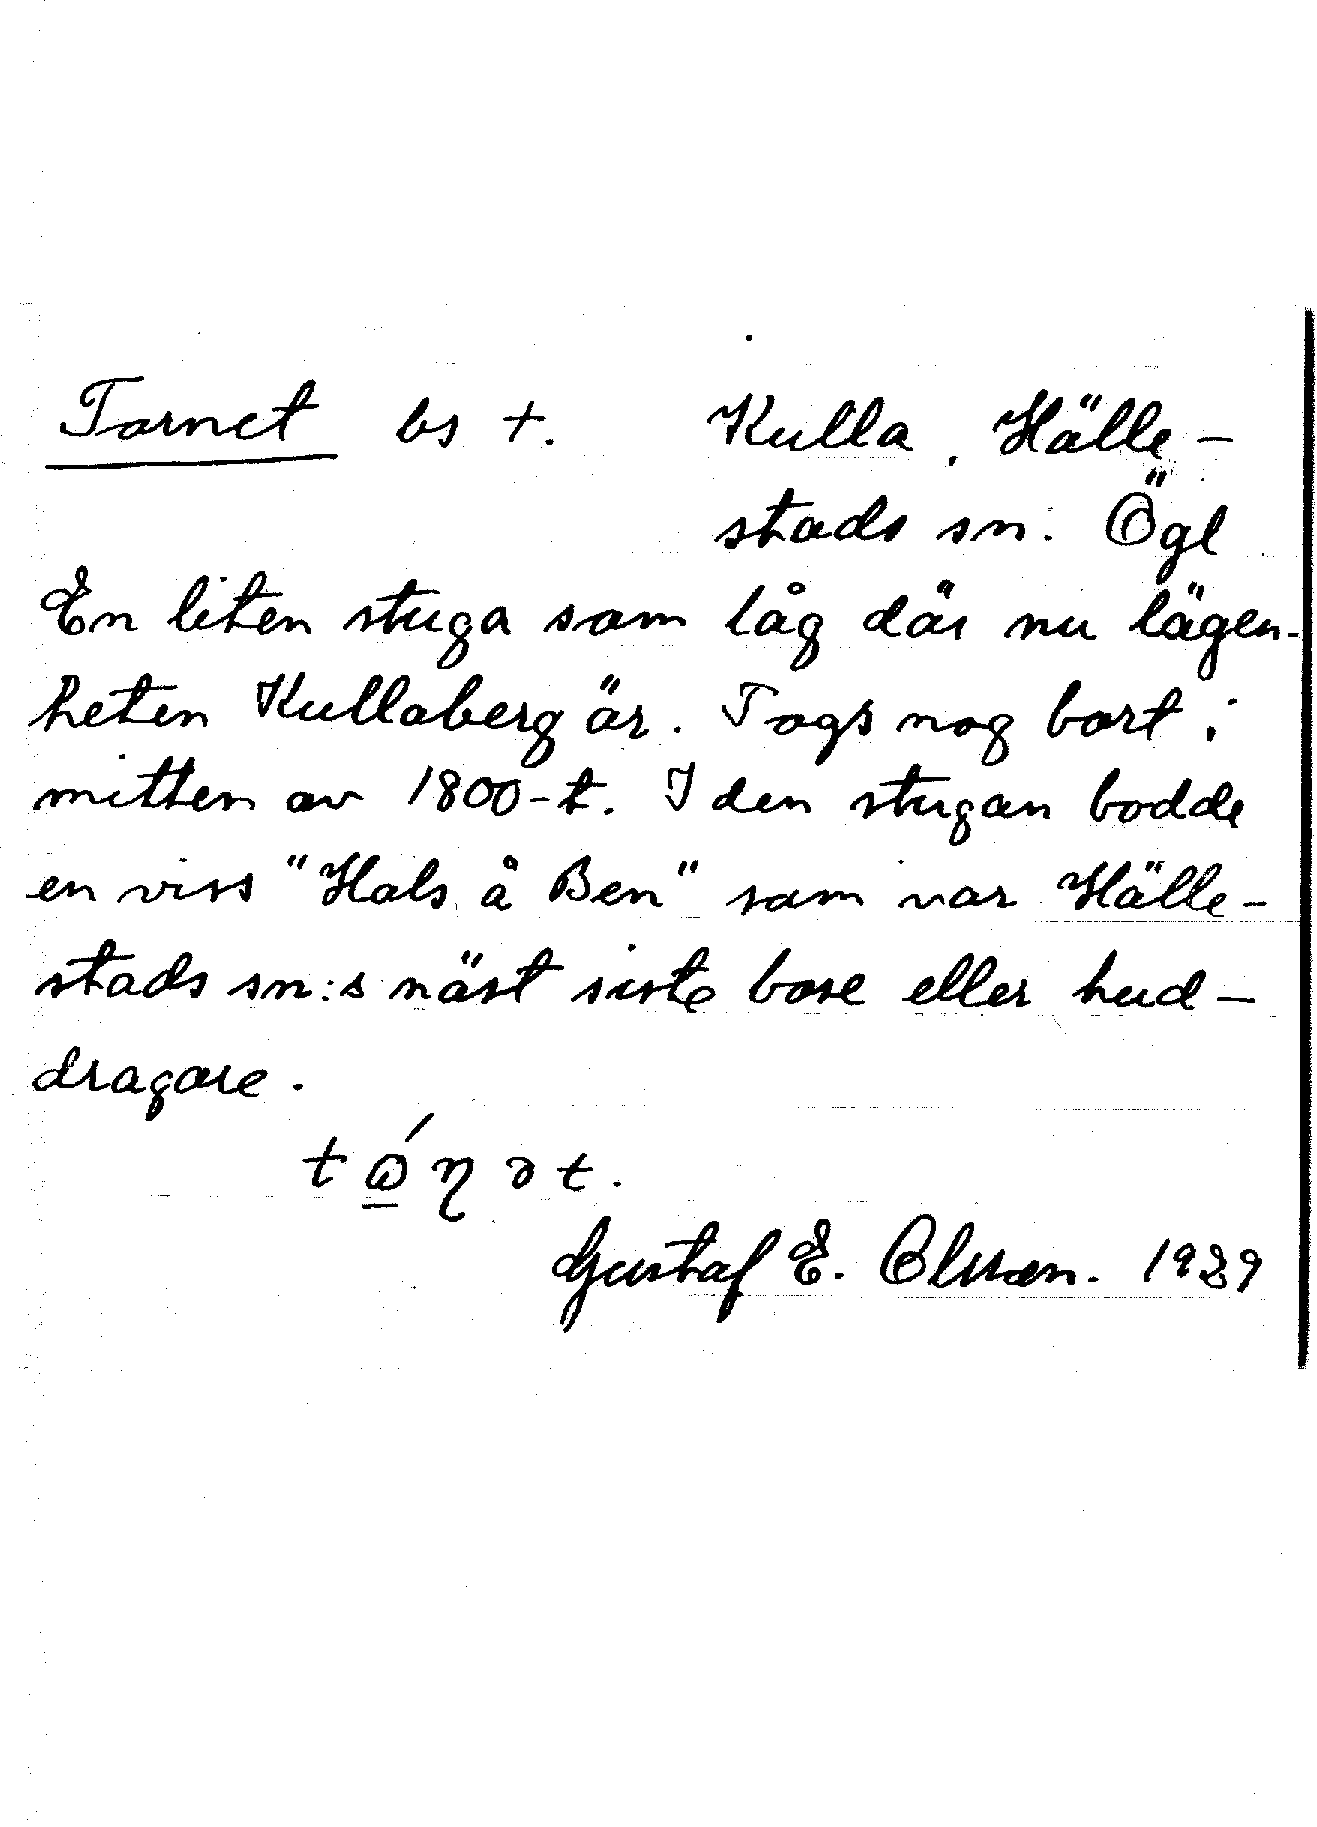 Tornet bs +. Kulla, Hälle-
stads sn. Ögl
En liten stuga som låg där nu lägen-
heten Kullaberg är. Togs nog bort i
mitten av 1800-t. I den stugan bodde
en viss "Hals å Ben" som var Hälle-
stads sn:s näst siste bose eller hud-
dragare.
Gustaf E. Olsson. 1929